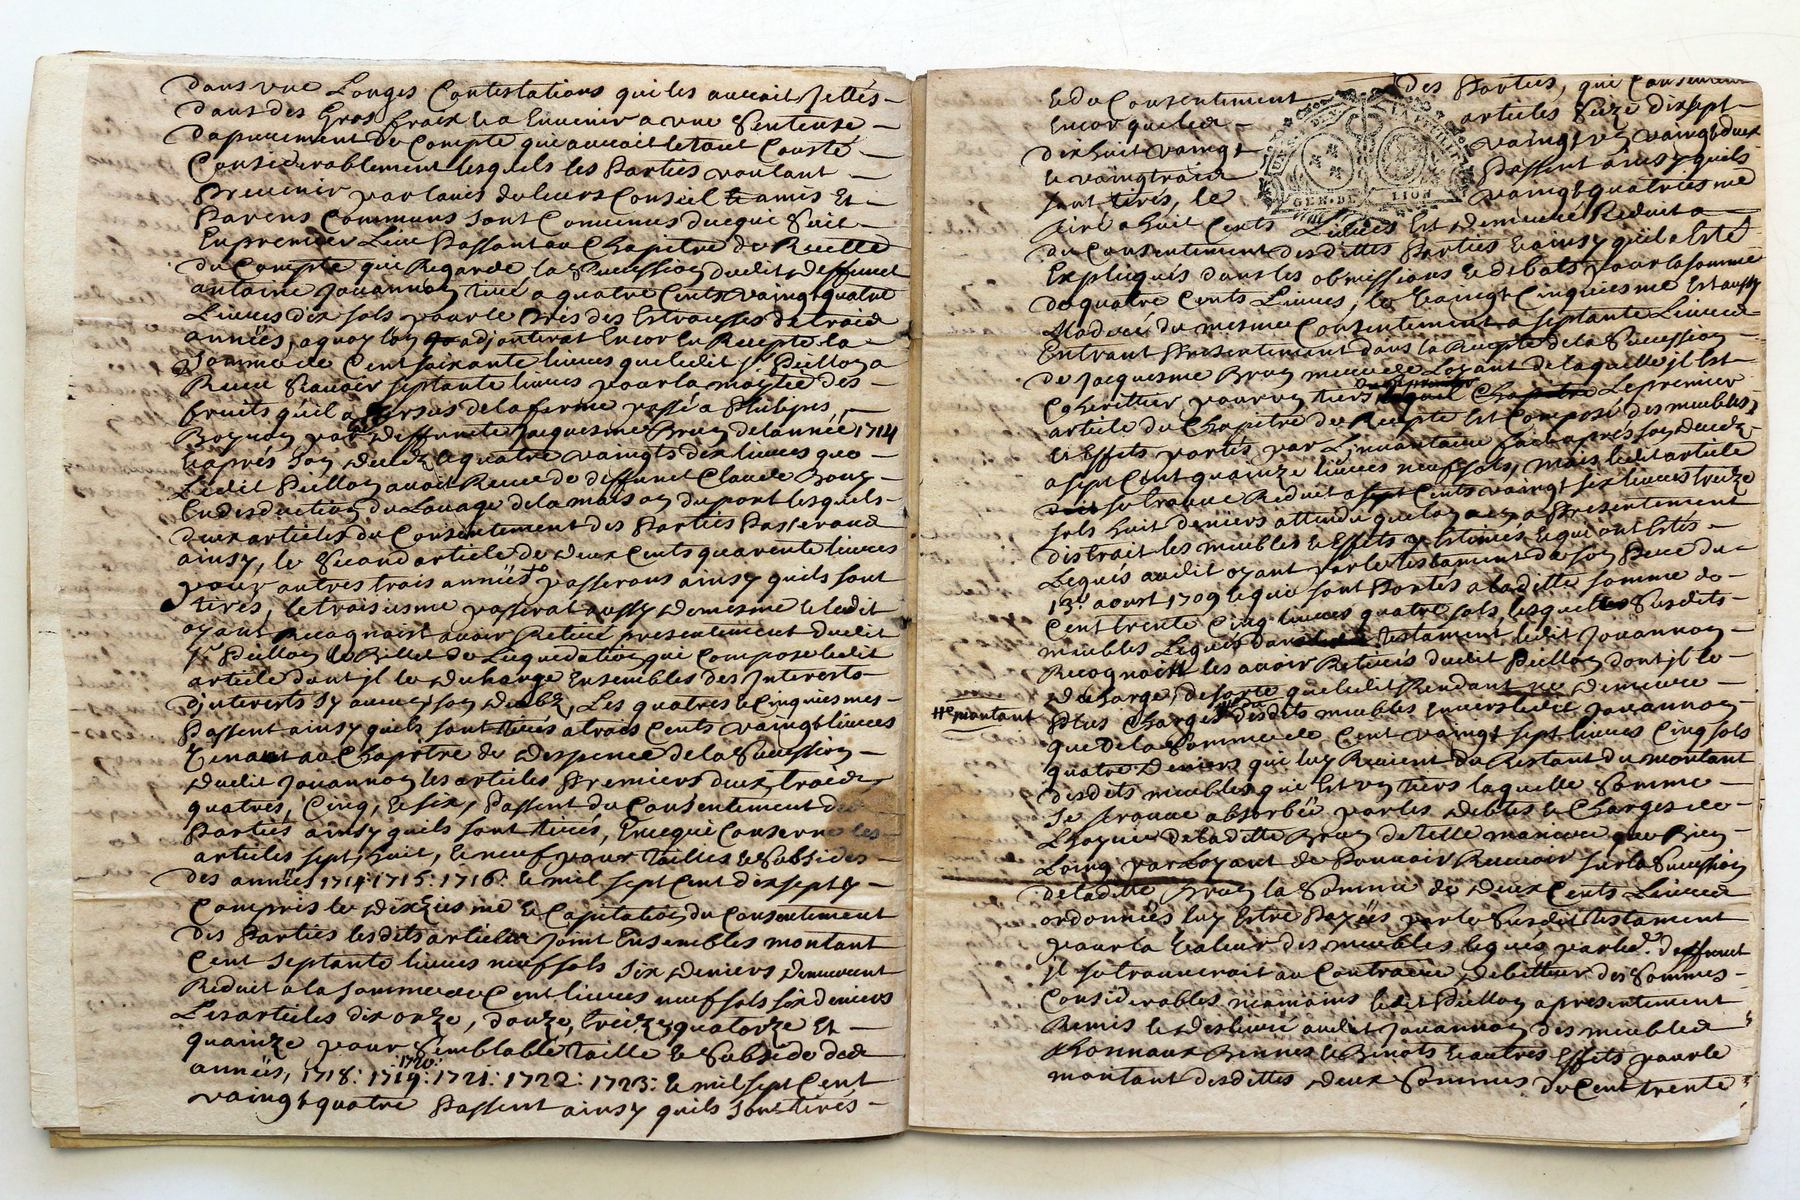 dans vne Longes Contestations qui les auroit Jettés
dans des Gros fraix et a Enuenir a vne Sentense
dapurement de Compte qui auroit le tout Couté
Considerablement lesquels les Parties voulant
Preuenir par lauis de leurs Conseil et amis Et
Parens Communs sont Conuenus de ce que Suit
En premier Lieu Passant au Chapitre de Recette
du Compte qui Regarde la Succession dudit deffunct
antoine Jouannon tiré a quatre Cents vaingt quatre
Liures dix sols pour le de trois
années, a quoy lon adjonterat Encor En Recepte la
Somme de Cent soixante liures que ledit sr Peillon a
Receu Scauoir septante liures pour la moytie des
fruits qu'il a de la ferme passé a Philipes
par deffuncte Jacquesme Brun de lannée 1714
Et aprés Son decedz et quatre vaingts dix liures que
Ledit Peillon auoit Receu de deffunct Claude
En desduction du Louage de la maison du pont lesquels
deux articles du Consentement des Parties Passeront
ainsy, le Second article de deux Cents quarente liures
pour autres trois années passerons ainsy quils sont
tirés, le troisiesme passerat aussy de mesme et ledit
oyant Recognaist auoir Retiré presentement dudit
sr Peillon le Billet de Liquidation qui Compose ledit
article dont jl le décharge Ensembles des Interets
Les quatres et Cinquiesmes
Passent ainsy quils sont tirés a trois Cents vaingt liures
Venant au Chapitre de despence de la Succession
dudit Jouannon les articles Premiers deux, trois
quatres, Cinq, et six, Passent du Consentement des
Parties ainsy quils sont tirés, En ce que Conserne les
articles sept, huit, et neuf pour tailles et Subsides
des années 1714: 1715: 1716: et mil sept Cent dix sept y
Compris le dixziesme et Capitation du Consentement
des Parties lesdits articles joint Ensembles montant
Cent septante liures neuf sols six deniers demeurent
Reduit a la somme de Cent liures neuf sols six deniers
Les articles dix onze, douze, treize, quatorze Et
quainze pour Semblable taille et Subside des
1720:
années, 1718: 1719: 1721: 1722: 1723: et mil sept Cent
vaingt quatre Passent ainsy quils sont tirés
et du Consentement des Parties, que Consernent
Encor que les articles Seize dix sept
dix huit vaingt vaingt vn vaingt deux
et vaingt trois Passent ainsy quils
sont tirés, le vaingt quatriesme
tiré a huit Cents Liures Est demeuré Reduit a
du Consentement desdittes Parties Et ainsy quil a Esté
Expliqués dans les obmissions et debats pour la somme
de quatre Cents Liures, le vaingt Cinquiesme Est aussy
Moderé du mesme Consentement a septante Liures
Entrant Presentement dans la Recepte de la Succession
de Jacquesme Brun mere de Loyant de laquelle jl Est
Coheritier pour vn tiers Le premier
article du Chapitre de Recepte Est Composé des meubles
et Effets portés par Linuantaire fait aprés son decedz
a sept Cent quainze liures neuf sols, mais ledit article
se trouue Reduit a sept Cents vaingt six liures treize
sols huit deniers attendu que lon en a Presentement
distrait les meubles et Effets y Estimés et qui ont Estés
Legués audit oyant par le testament de son Pere du
13e aoust 1709 et qui sont Portés a la ditte somme de
Cent trente Cinq liures quatre sols, lesquelles Susdits
meubles Legués dans testament ledit Jouannon
Recognaist les auoir Retirés dudit Peillon dont jl le
décharge, de sorte que ledit Rendant ne demeure
Plus Chargés desdits meubles enuers ledit Jouannon
# le montant
que de la Somme de Cent vaingt sept liures Cinq sols
quatre deniers qui luy Reuient du Restant du montant
desdits meubles qui Est vn tiers laquelle Somme
Se trouue absorbée par les debtes et Charges de
Lhoyrie de la ditte Brun de telle maniere que Bien
Loing par Loyant de Pouuoir Receuoir sur la Succession
de la ditte Brun la Somme de deux Cents Liures
ordonnées luy Estre Payées par le Susdit testament
pour la Valeur des meubles legués par led. deffunct
jl se trouueroit au Contraire debitteur des Sommes
Considerables neamoins ledit Peillon a presentement
Remis et desliuré audit Jouannon des meubles
Thonneaux Bennes et Binots et autres Effets pour le
montant desdittes deux Sommes de Cent trente
GEN. DE LION